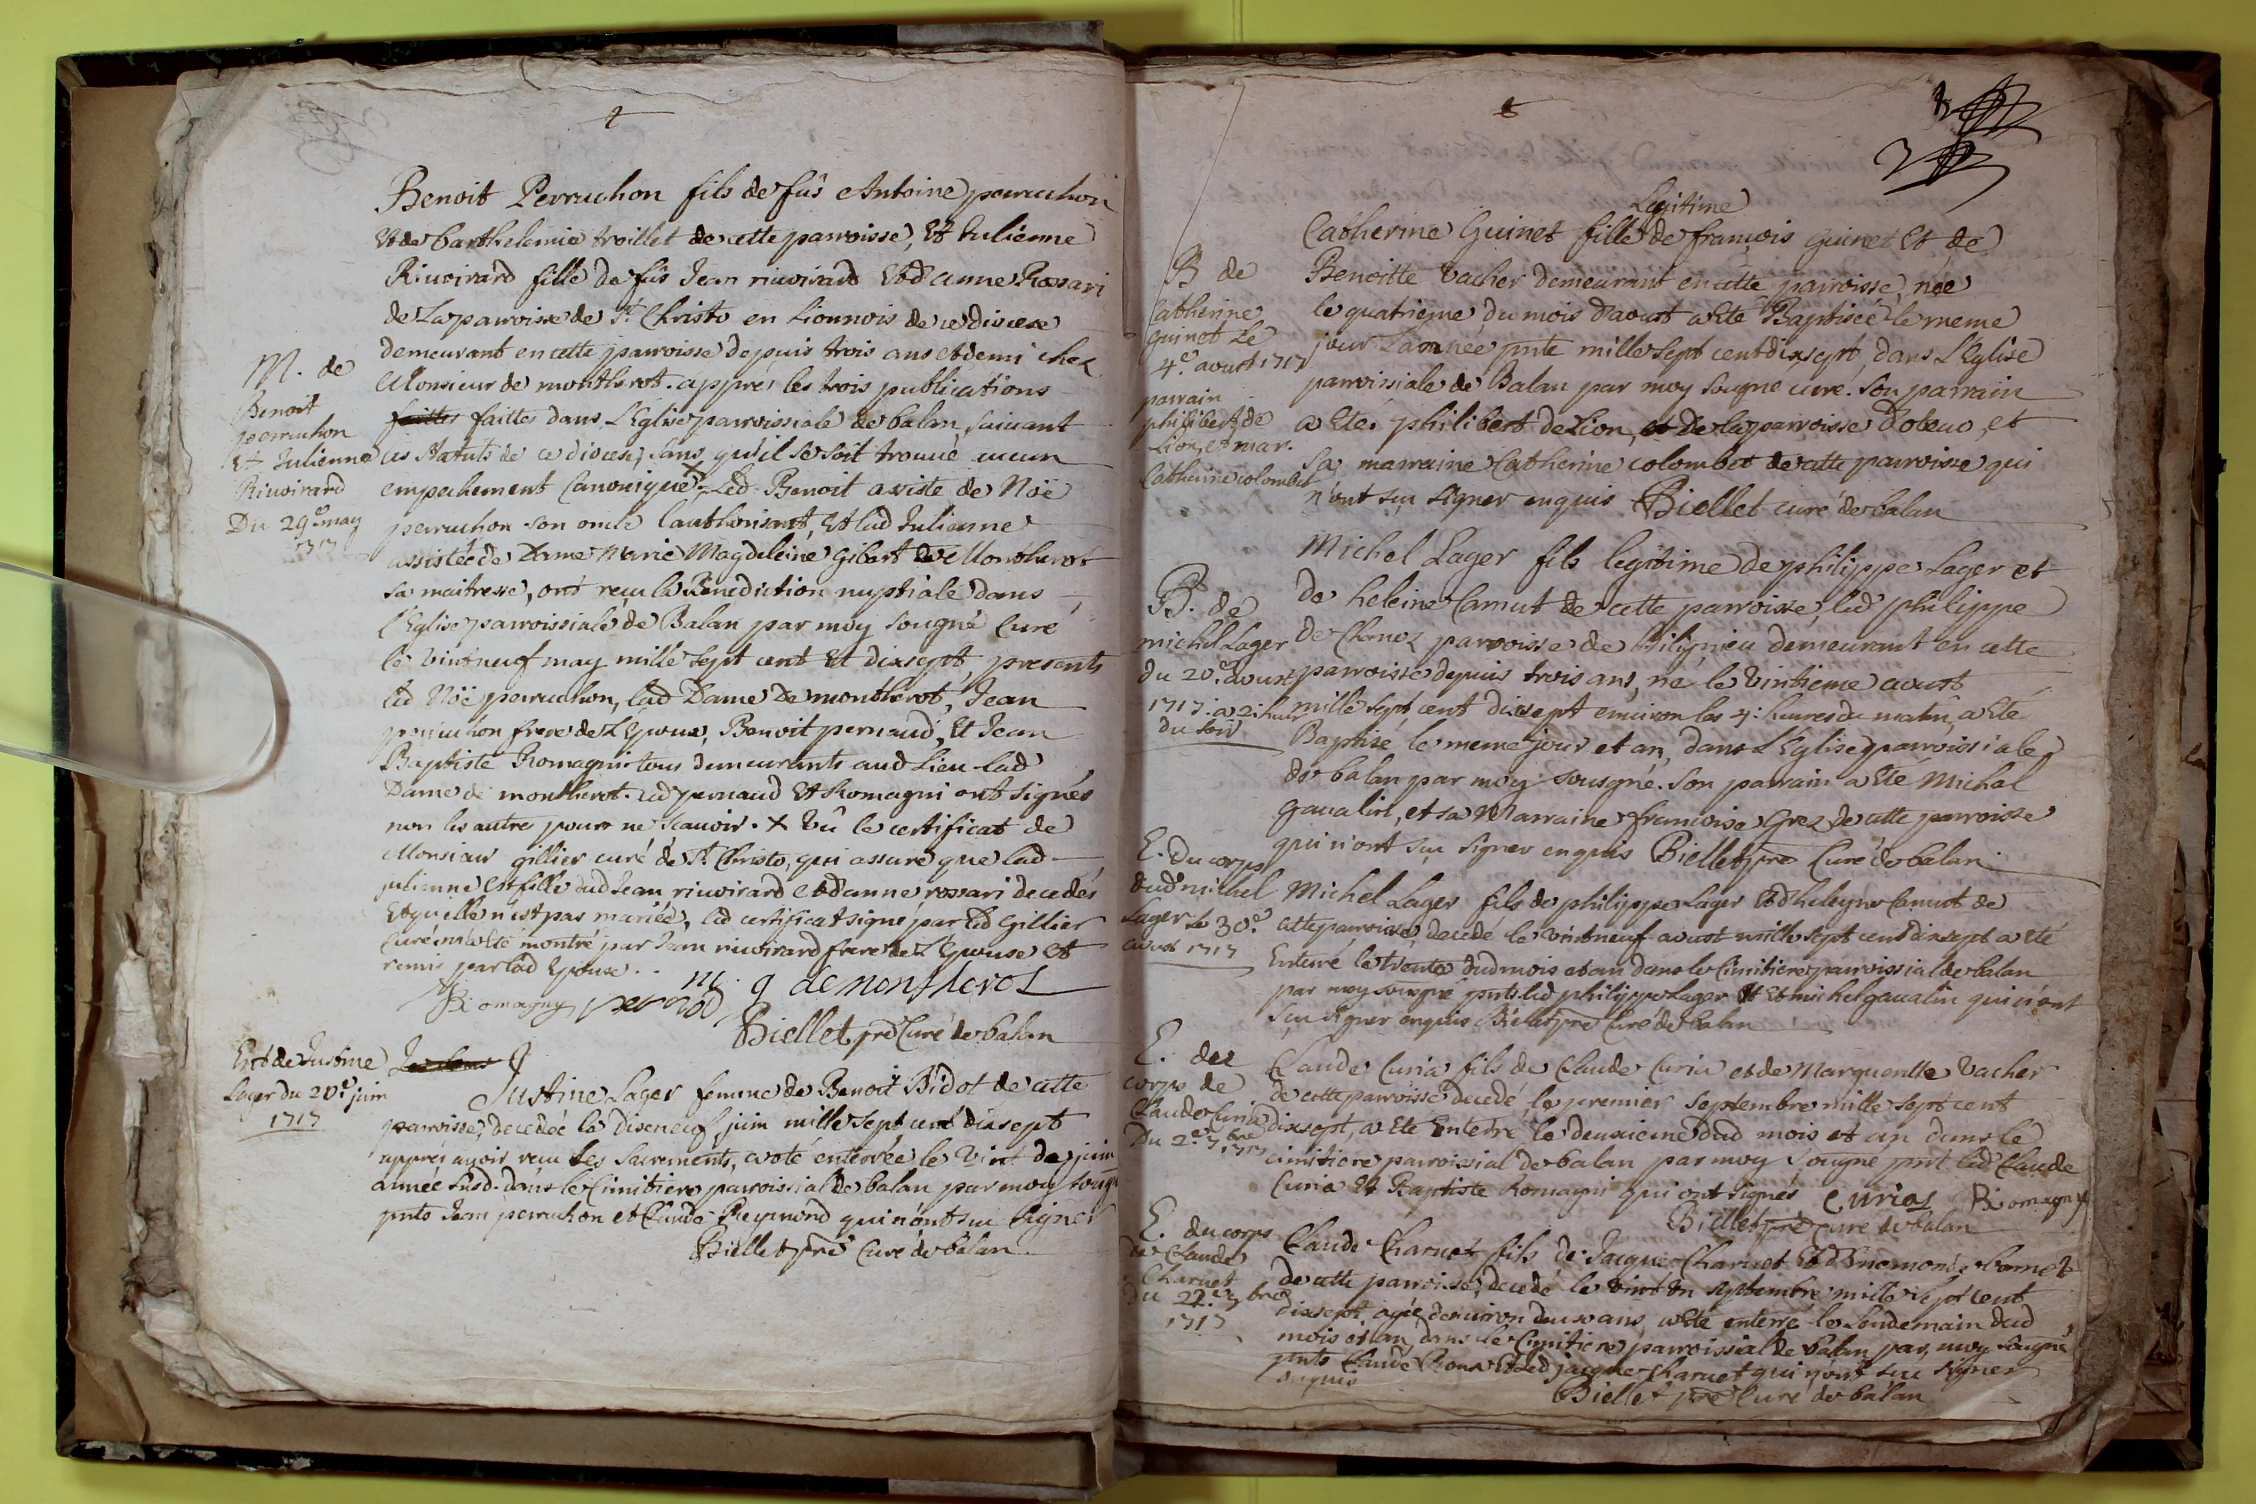 Benoit Perruchon fils de fûs Antoine perruchon
Et de barthelemie troillet de cette parroisse, Et Julienne
Riuoirard fille de fûs Jean riuoirard Et d'anne Rossari
de La parroisse de St Christo en Lionnois de ce diocese
demeurant en cette parroisse depuis trois ans et demi chez
Monsieur de montherot. apprés les trois publications
faittes faittes dans L'Eglise parroissiale de balan, suiuant
les statuts de ce diocese, sans qu'il se soit trouué aucun
empechement Canonique × Led Benoit assisté de Noë
perruchon son oncle lauthorisant, Et lad Julienne
assistée de Dame Marie Magdeleine gibert de Montherot
sa maitresse, ont reçu la Benediction nuptiale dans
l'Eglise parroissiale de Balan par moy sousgné Curé
le vintneuf may mille sept cent Et dixsept, presents
led Noë perruchon, lad Dame De montherot, Jean
perruchon frere de L'Epoux, Benoit pernaud, Et Jean
Baptiste Romagni tous demeurants aud Lieu lad
Dame de montherot. led pernaud Et Romagni ont signés
non les autre pour ne scauoir. × Vû le certificat de
Monsieur gillier curé de St Christo, qui assure que lad
julienne est fille dud Jean riuoirard et d'anne rossari decedés
Et qu'elle n'est pas mariée, led certificat signé par led Gillier
Curé m'a Eté montré par Jean riuoirard frere de L'Epouse et
remis par lad Epouse..
m. g de montherot
Romagny pernod
Biellet pre Curé de balan
M. de
Benoit
perruchon
Et Julienne
Riuoirard
Du 29e may
1717
Ent de Justine
Lager du 20e juin
1717
Justine Lager femme de Benoit Bidot de cette
parroisse, decedée le diseneuf juin mille sept cent dixsept
apprés auoir reçu les Sacrements, a eté enterrée le vint de juin
année susd. dans le Cimitiere parroissial de balan par moy sousgné
pnts Jean perruchon et Claude Reymond qui n'ont sçu signer
Biellet pre Curé de balan
Legitime
Catherine Guinet fille de françois Guinet Et de
Benoitte Vacher demeurant en cette parroisse, née
le quatrieme du mois d'aoust a Eté Baptisée le meme
jour L'année pnte mille sept cent dixsept, dans L'Eglise
parroissiale de Balan par moy sousgne curé. Son parrain
a Eté philibert de Lion, et de la parroisse, et
sa marraine Catherine colombet de cette parroisse qui
n'ont sçu signer enquis Biellet curé de balan
B de
Catherine
guinet Le
4e aoust 1717
parrain
philibert de
Lion, et mar.
Catherine colombet
Michel Lager fils legitime de philippe Lager et
de heleine Camut de cette parroisse, led philippe
de parroisse de demeurant en cette
parroisse depuis trois ans, né le vintieme aoust
mille sept cent dixsept enuiron les 4: heures du matin, a Eté
Baptisé le meme jour et an, dans L'Eglise parroissiale
de balan par moy sousgné. Son parrain a Eté Michel
gaualin, et sa Marraine francoise Grez de cette parroisse
qui n'ont sçu signer enquis Biellet pre Curé de balan
B. de
michel Lager
du 20e aoust
1717. a 2: heur
du soir
E. Du corps
dud michel
Lager le 30e
aoust 1717
Michel Lager fils de philippe Lager Et d'heleyne Camut de
cette parroisse, decedé le vintneuf aoust mille sept cent dixsept a Eté
Enterré le trente dud mois et an dans le Cimitiere parroissial de balan
par moy sousgné pnts led philippe Lager Et michel gaualin qui n'ont
sçu signer enquis Biellet pre Curé de balan
E. des
corps de
Claude Curia
Du 2e 7bre 1717
Claude Curia fils de Claude Curia et de Margueritte Vacher
de cette parroisse decedé, le premier septembre mille sept cent
dixsept, a Eté Enterré le deuxieme dud mois et an dans le
cimitiere parroissial de balan par moy sousgné pnt led Claude
Curia Et Baptiste Romagni qui ont signés Curias Romagny
Biellet pre Curé de balan
E. du corps
de Claude
Charuet
Du 22e 7bre
1717
Claude Charuet fils de Jacque Charuet Et d'
de cette parroisse, decedé le vint un septembre mille sept cent
dixsept, agé d'enuiron deux ans, a Eté enterré le Lendemain dud
mois et an, dans le Cimitiere parroissial de balan par moy sousgné
pnts Claude Et led jacque Charuet qui n'ont sçu signer
enquis
Biellet pre Curé de balan